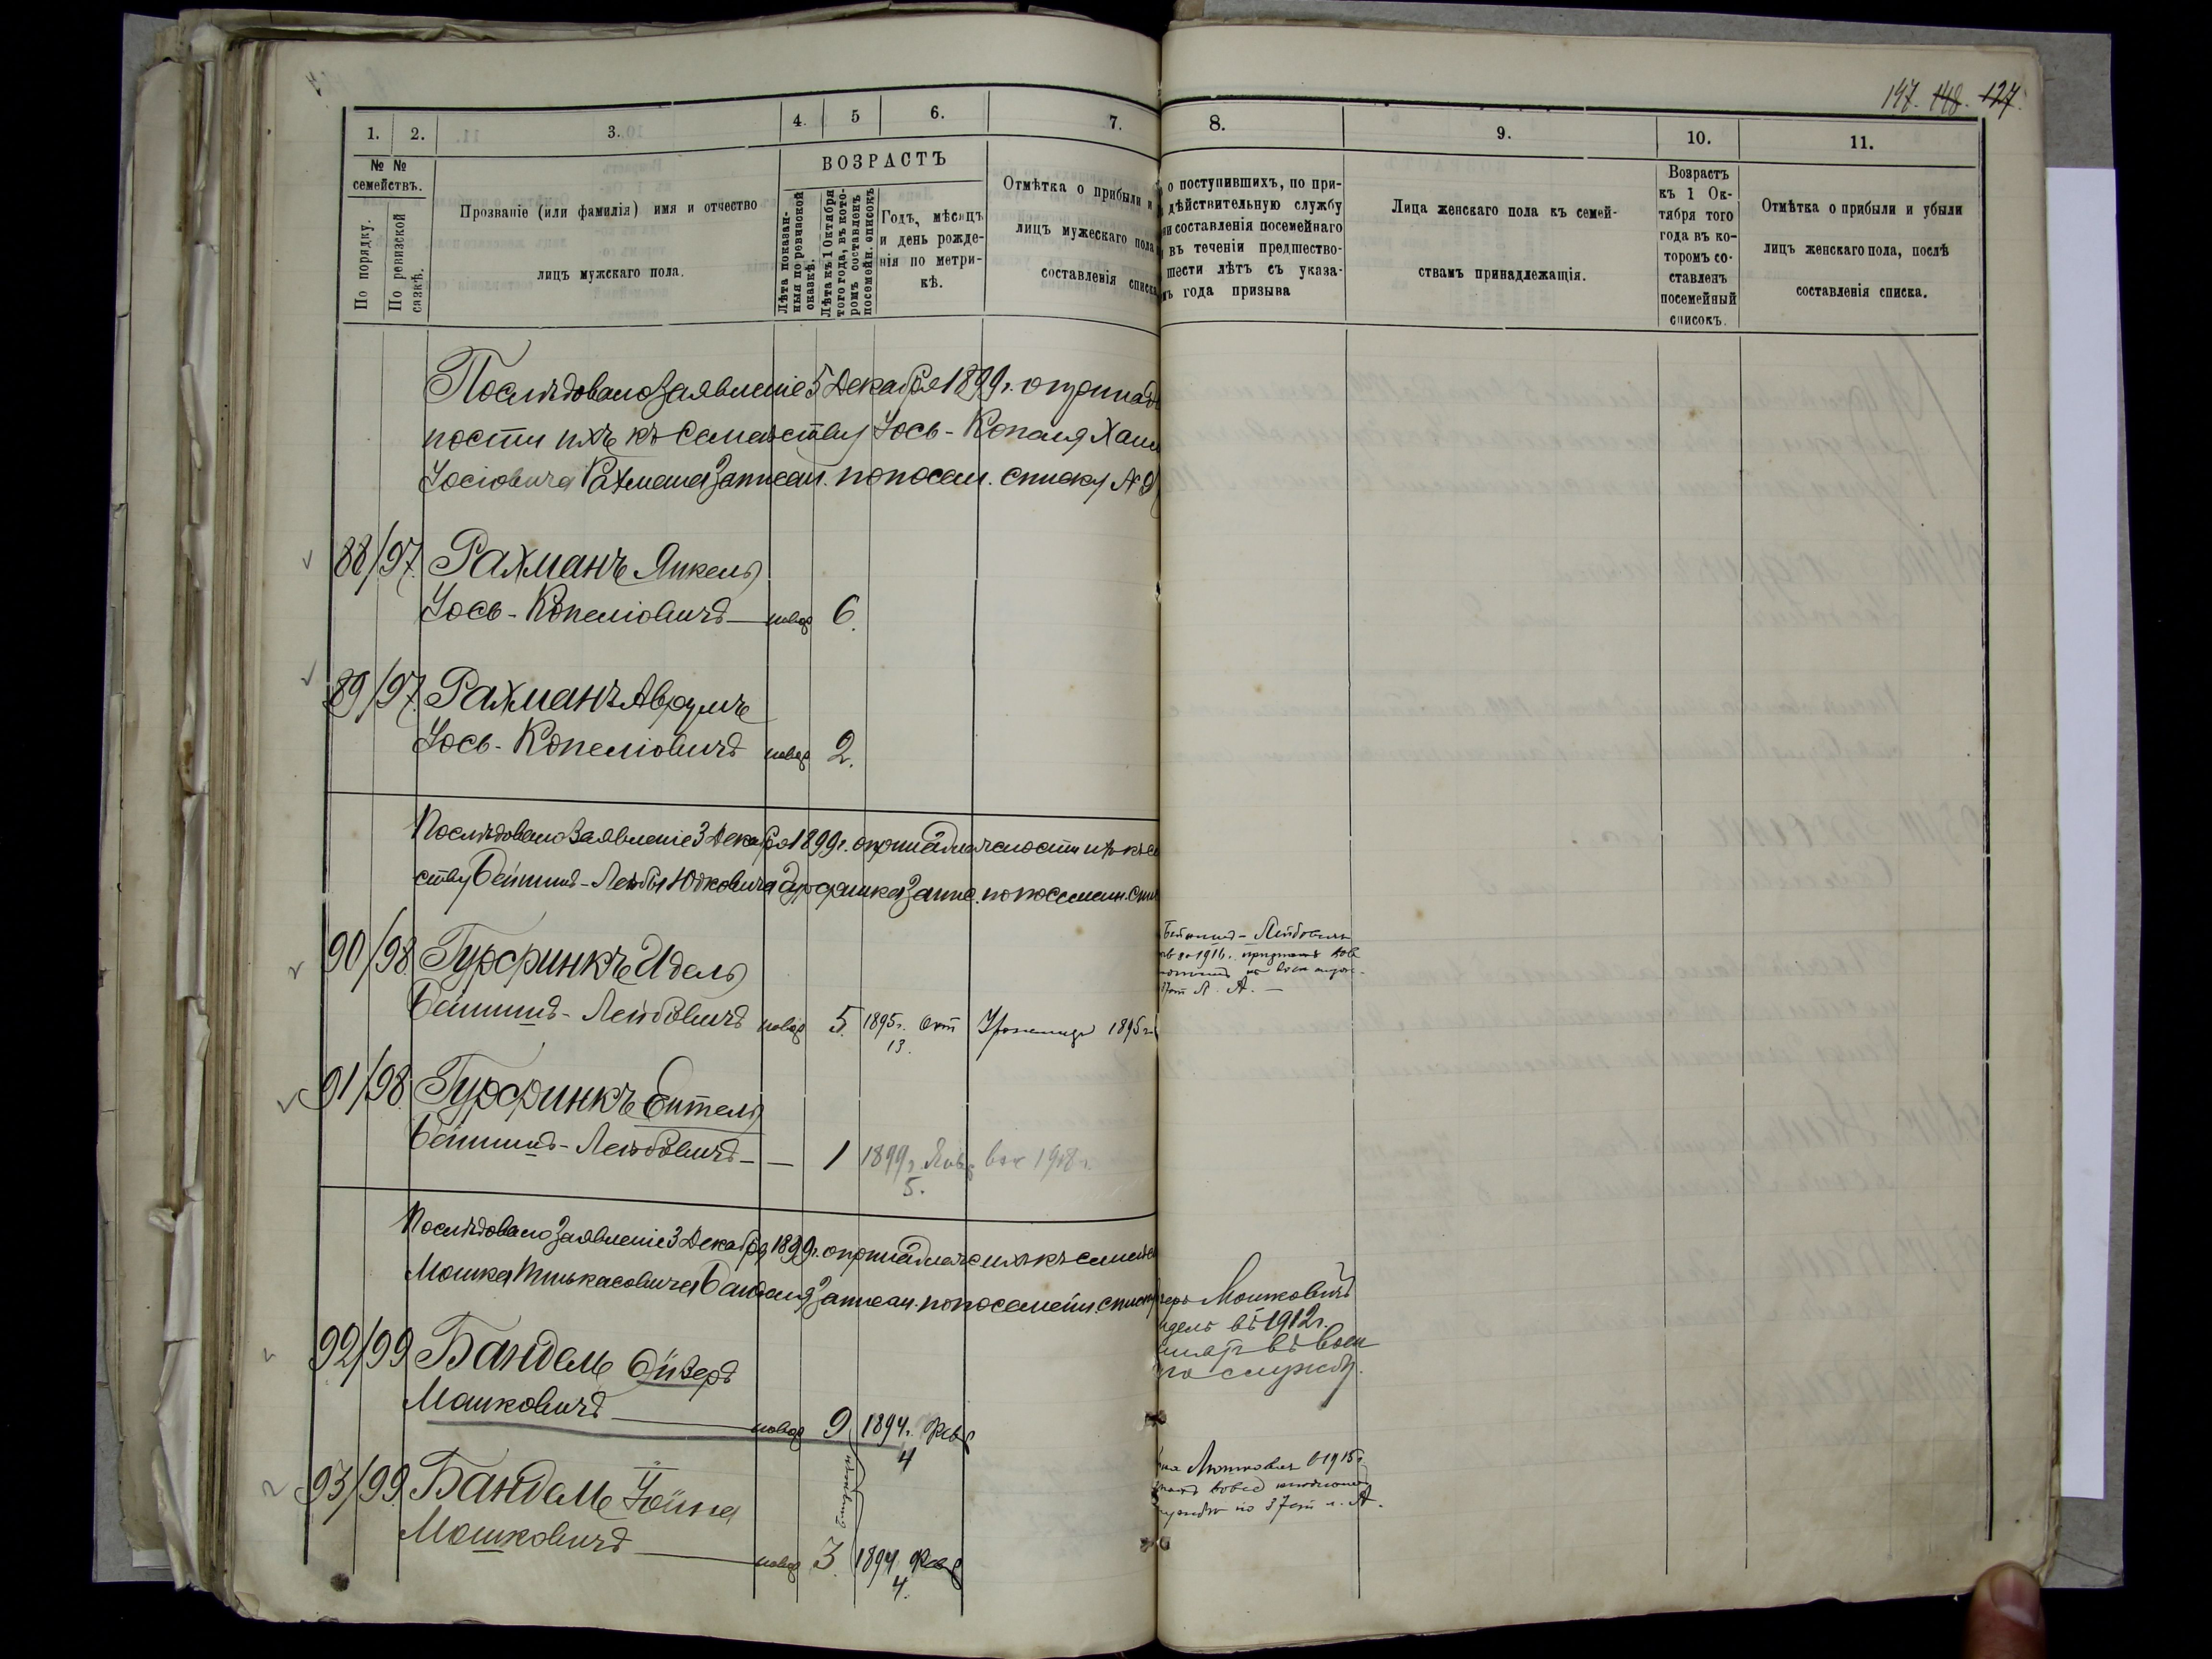 197. 148. 127.
1. 2. 3. 4. 5 6. 7. 8. 9. 10. 11.
№ № семействъ.
По порядку.
По ревизской сказкѣ.
Прозваніе (или фамилія) имя и отчество
лицъ мужскаго пола.
ВОЗРАСТЪ
Лѣта показан-
ныя по ревизской
сказкѣ.
Лѣта къ 1 Октября
того года, въ кото-
ромъ составленъ
посемейн. списокъ
Годъ, мѣсяцъ
и день рожде-
нія по метри-
кѣ.
Отмѣтка о прибыли и
лицъ мужескаго пола
составленія списка
о поступившихъ, по при-
дѣйствительную службу
составленія посемейнаго
въ теченіи предшество-
шести лѣтъ съ указа-
года призыва
Лица женскаго пола къ семей-
ствамъ принадлежащія.
Возрастъ
къ 1 Ок-
тября того
года въ ко-
торомъ со-
ставленъ
посемейный
списокъ.
Отмѣтка о прибыли и убыли
лицъ женскаго пола, послѣ
составленія списка.
Послѣдовало Заявленіе 5 Декабря 1899 г. о принад
ности ихъ къ Семейству Іось-Копеля Хаим
Іосіовича Рахмана Записан. по посем. списку №
88/97. Рахманъ Янкель
Іось-Копеліовичъ — новор 6.
89/97 Рахманъ Аврумъ
Іось-Копеліовичъ новор 2.
Послѣдовало Заявленіе 3 Декабря 1899 г. о принадлежности ихъ къ се
ству Бейниша-Лейбы Юдковича Гурфинка Запис. по посемейн. спис
90/98 Гурфинкъ Идель
Бейнишъ-Лейбовичъ новор 5. 1895 г. Окт 13. 1895
Бейнишъ-Лейбовичъ
1916 г. признанъ
91/98. Гурфинкъ Ентель
Бейнишъ-Лейбовичъ — — 1 1899 г. Янв. 5. 1918 г.
Послѣдовало Заявленіе 3 Декабря 1899 г. о принадлеж ихъ къ семейс
Мошка Пинькасовича Банделя Записан. по посемейн. списку
92/99 Бандель Ойзеръ
Мошковичъ — новор 9 1894 г. Февр 4
Мошковичъ
въ 1912 г.
службу.
93/99 Бандель Іойна
Мошковичъ — новор 3. 1894 Февр 4.
близнецы
Мошковичъ 1915 г.
по 37 ст л. А.